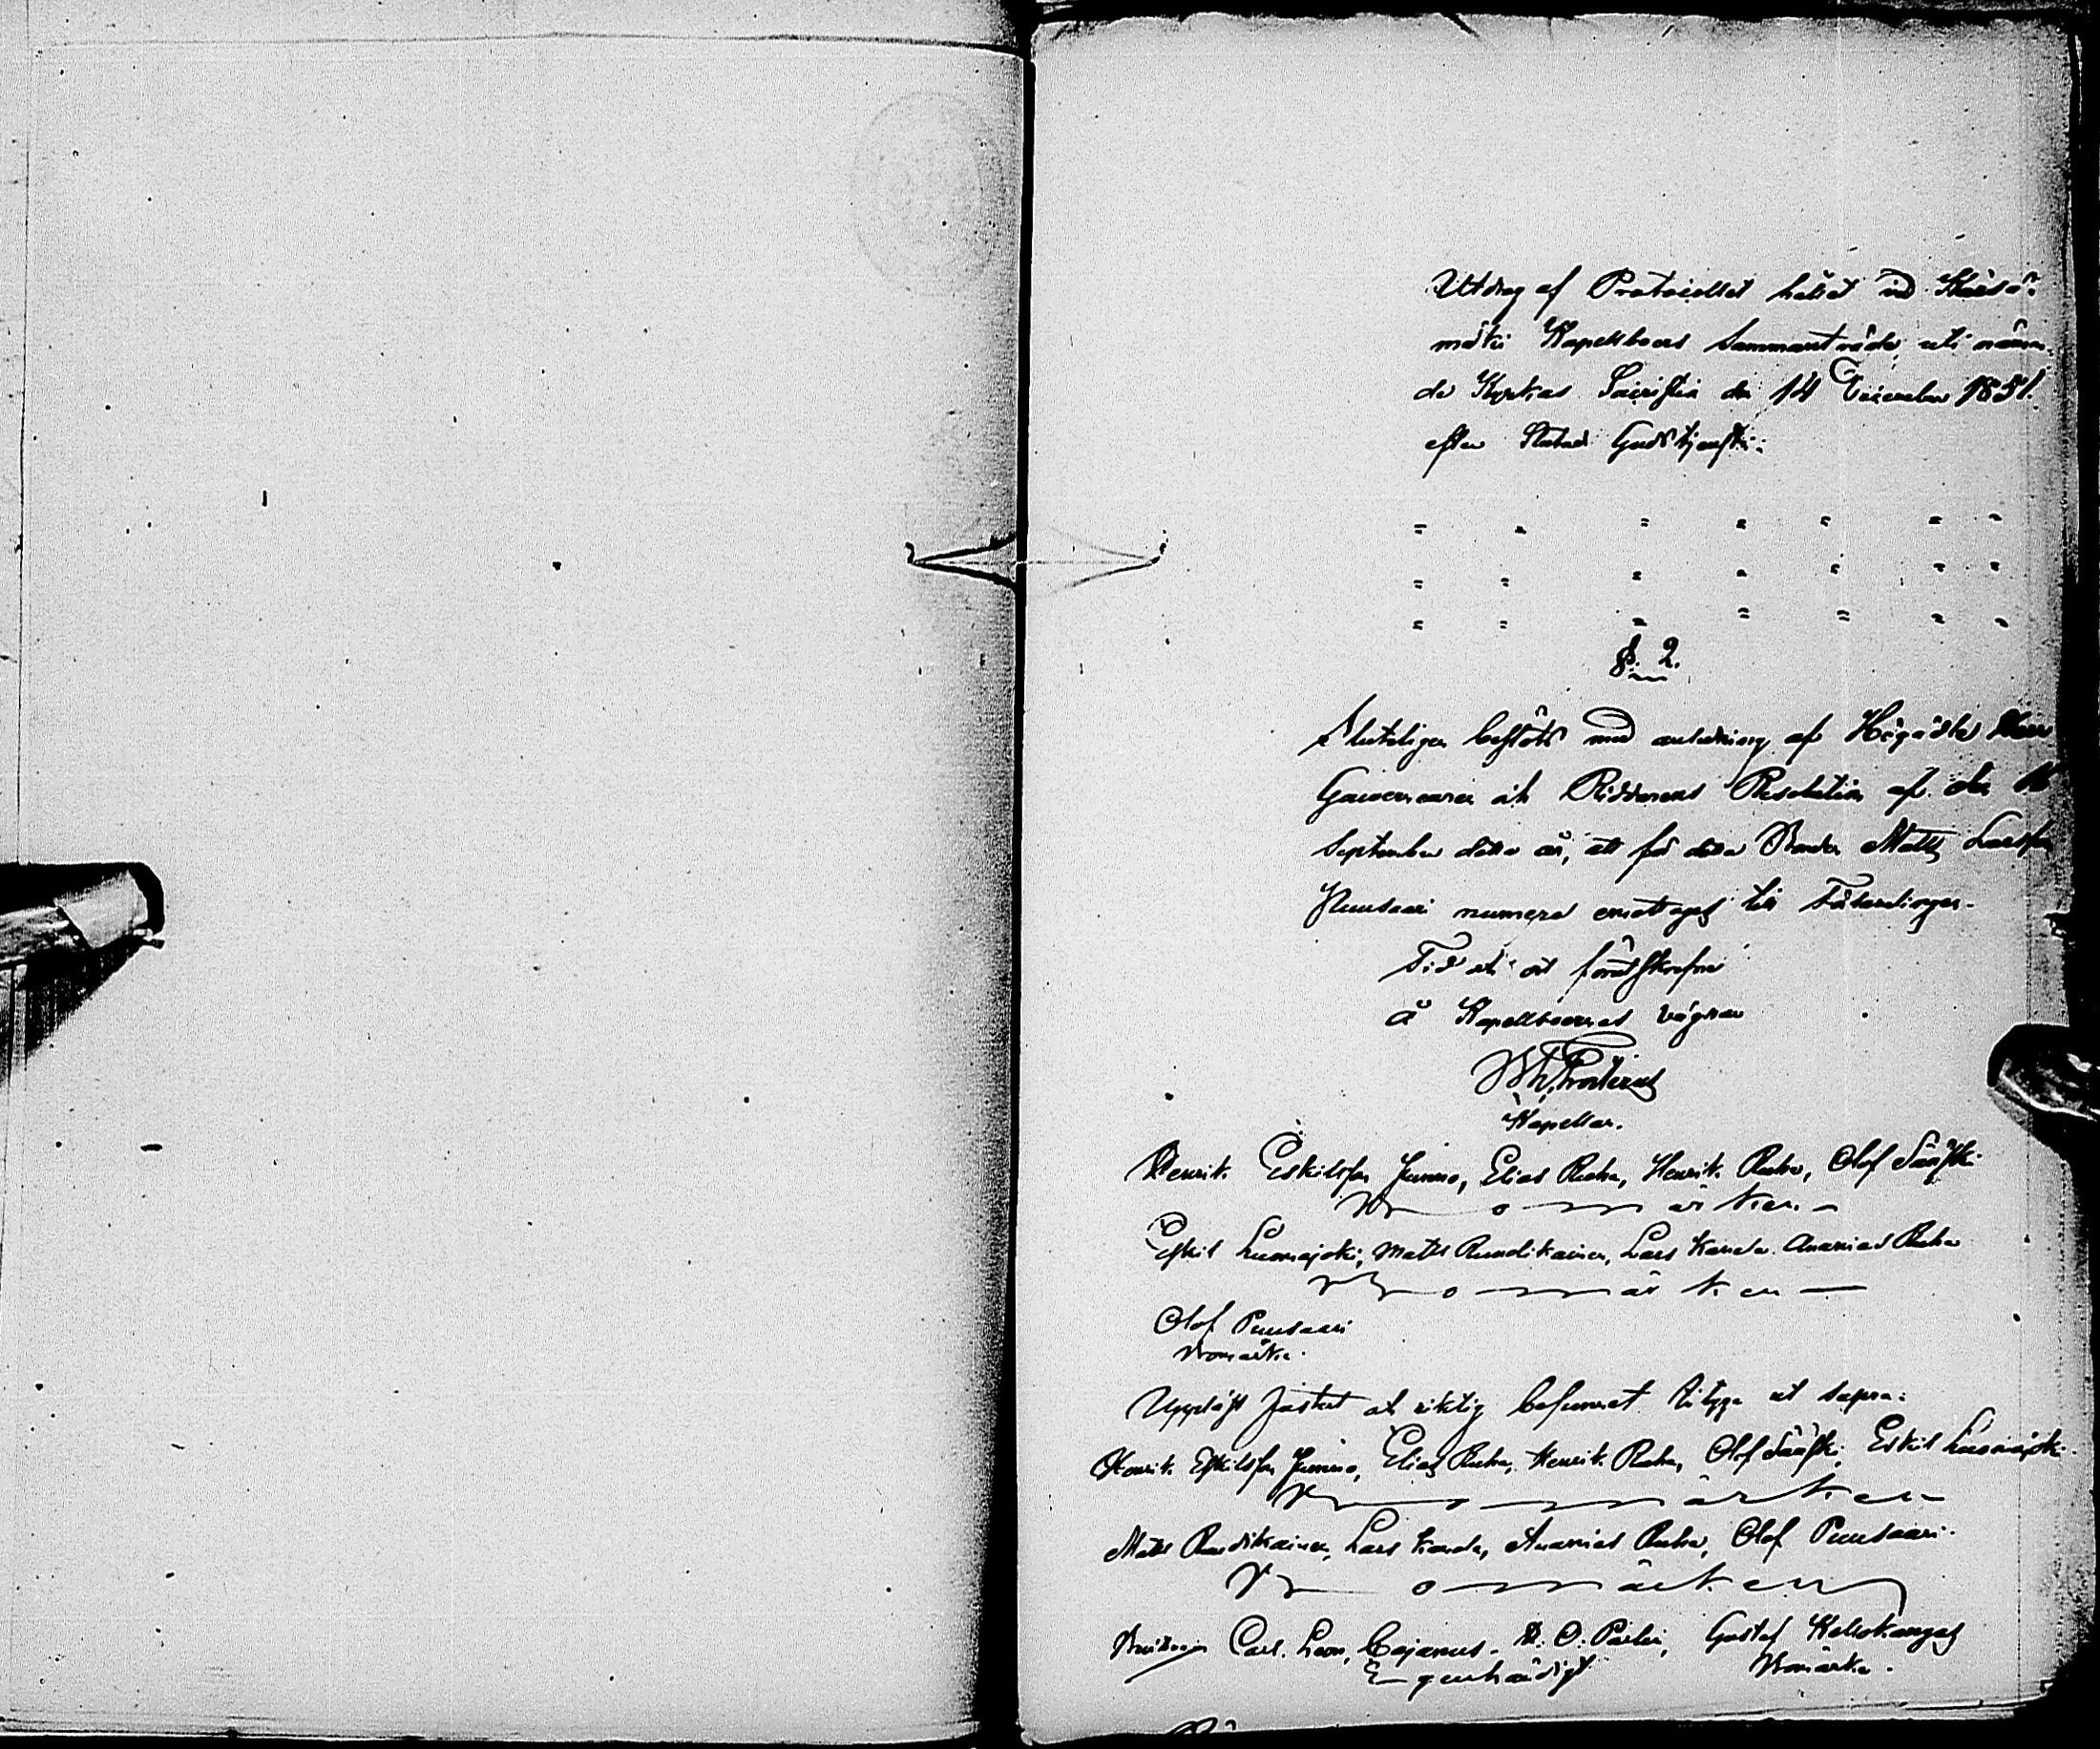 Utdrag af Protocollet hållet vid Kärsä-
mäki Kapellboers Sammanträde uti nämn-
de Kyrkas Sacristia den 14 December 1851.
efter Slutad Gudstjenst.
" " " " " " "
" " " " " " "
" " " " " " "
§. 2.
Sluteligen beslöts med anledning af Högädle Herr
Gouverneuren och Riddarens Resolution af den 16
September detta år, att för detta Bonden Matts Larsson
numera emottages till
Tid och ort förutskrefne
å Kapellboernas vägnar
Kapellan.
Henrik Eskilsson Junno, Elias Ruha, Henrik Ruha, Olof Säästki
Bomärken
Eskil Luomajoki, Matts Rundikainen, Lars Karada Ananias Ruha
Bomärken
Olof Puusaari
Bomärke.
Uppläst justert och riktig befunnet betyga ut supra:
Henrik Eskilsson Junno, Elias Ruha, Henrik Ruha, Olof Säästki, Eskil Luomajoki.
Bomärken
Matts Rundikainen, Lars Karada, Ananias Ruha, Olof Puusaari.
Bomärken
Carl. Leon. Cajanus. Gustaf Kellokangas
Egenhändigt Bomärke.